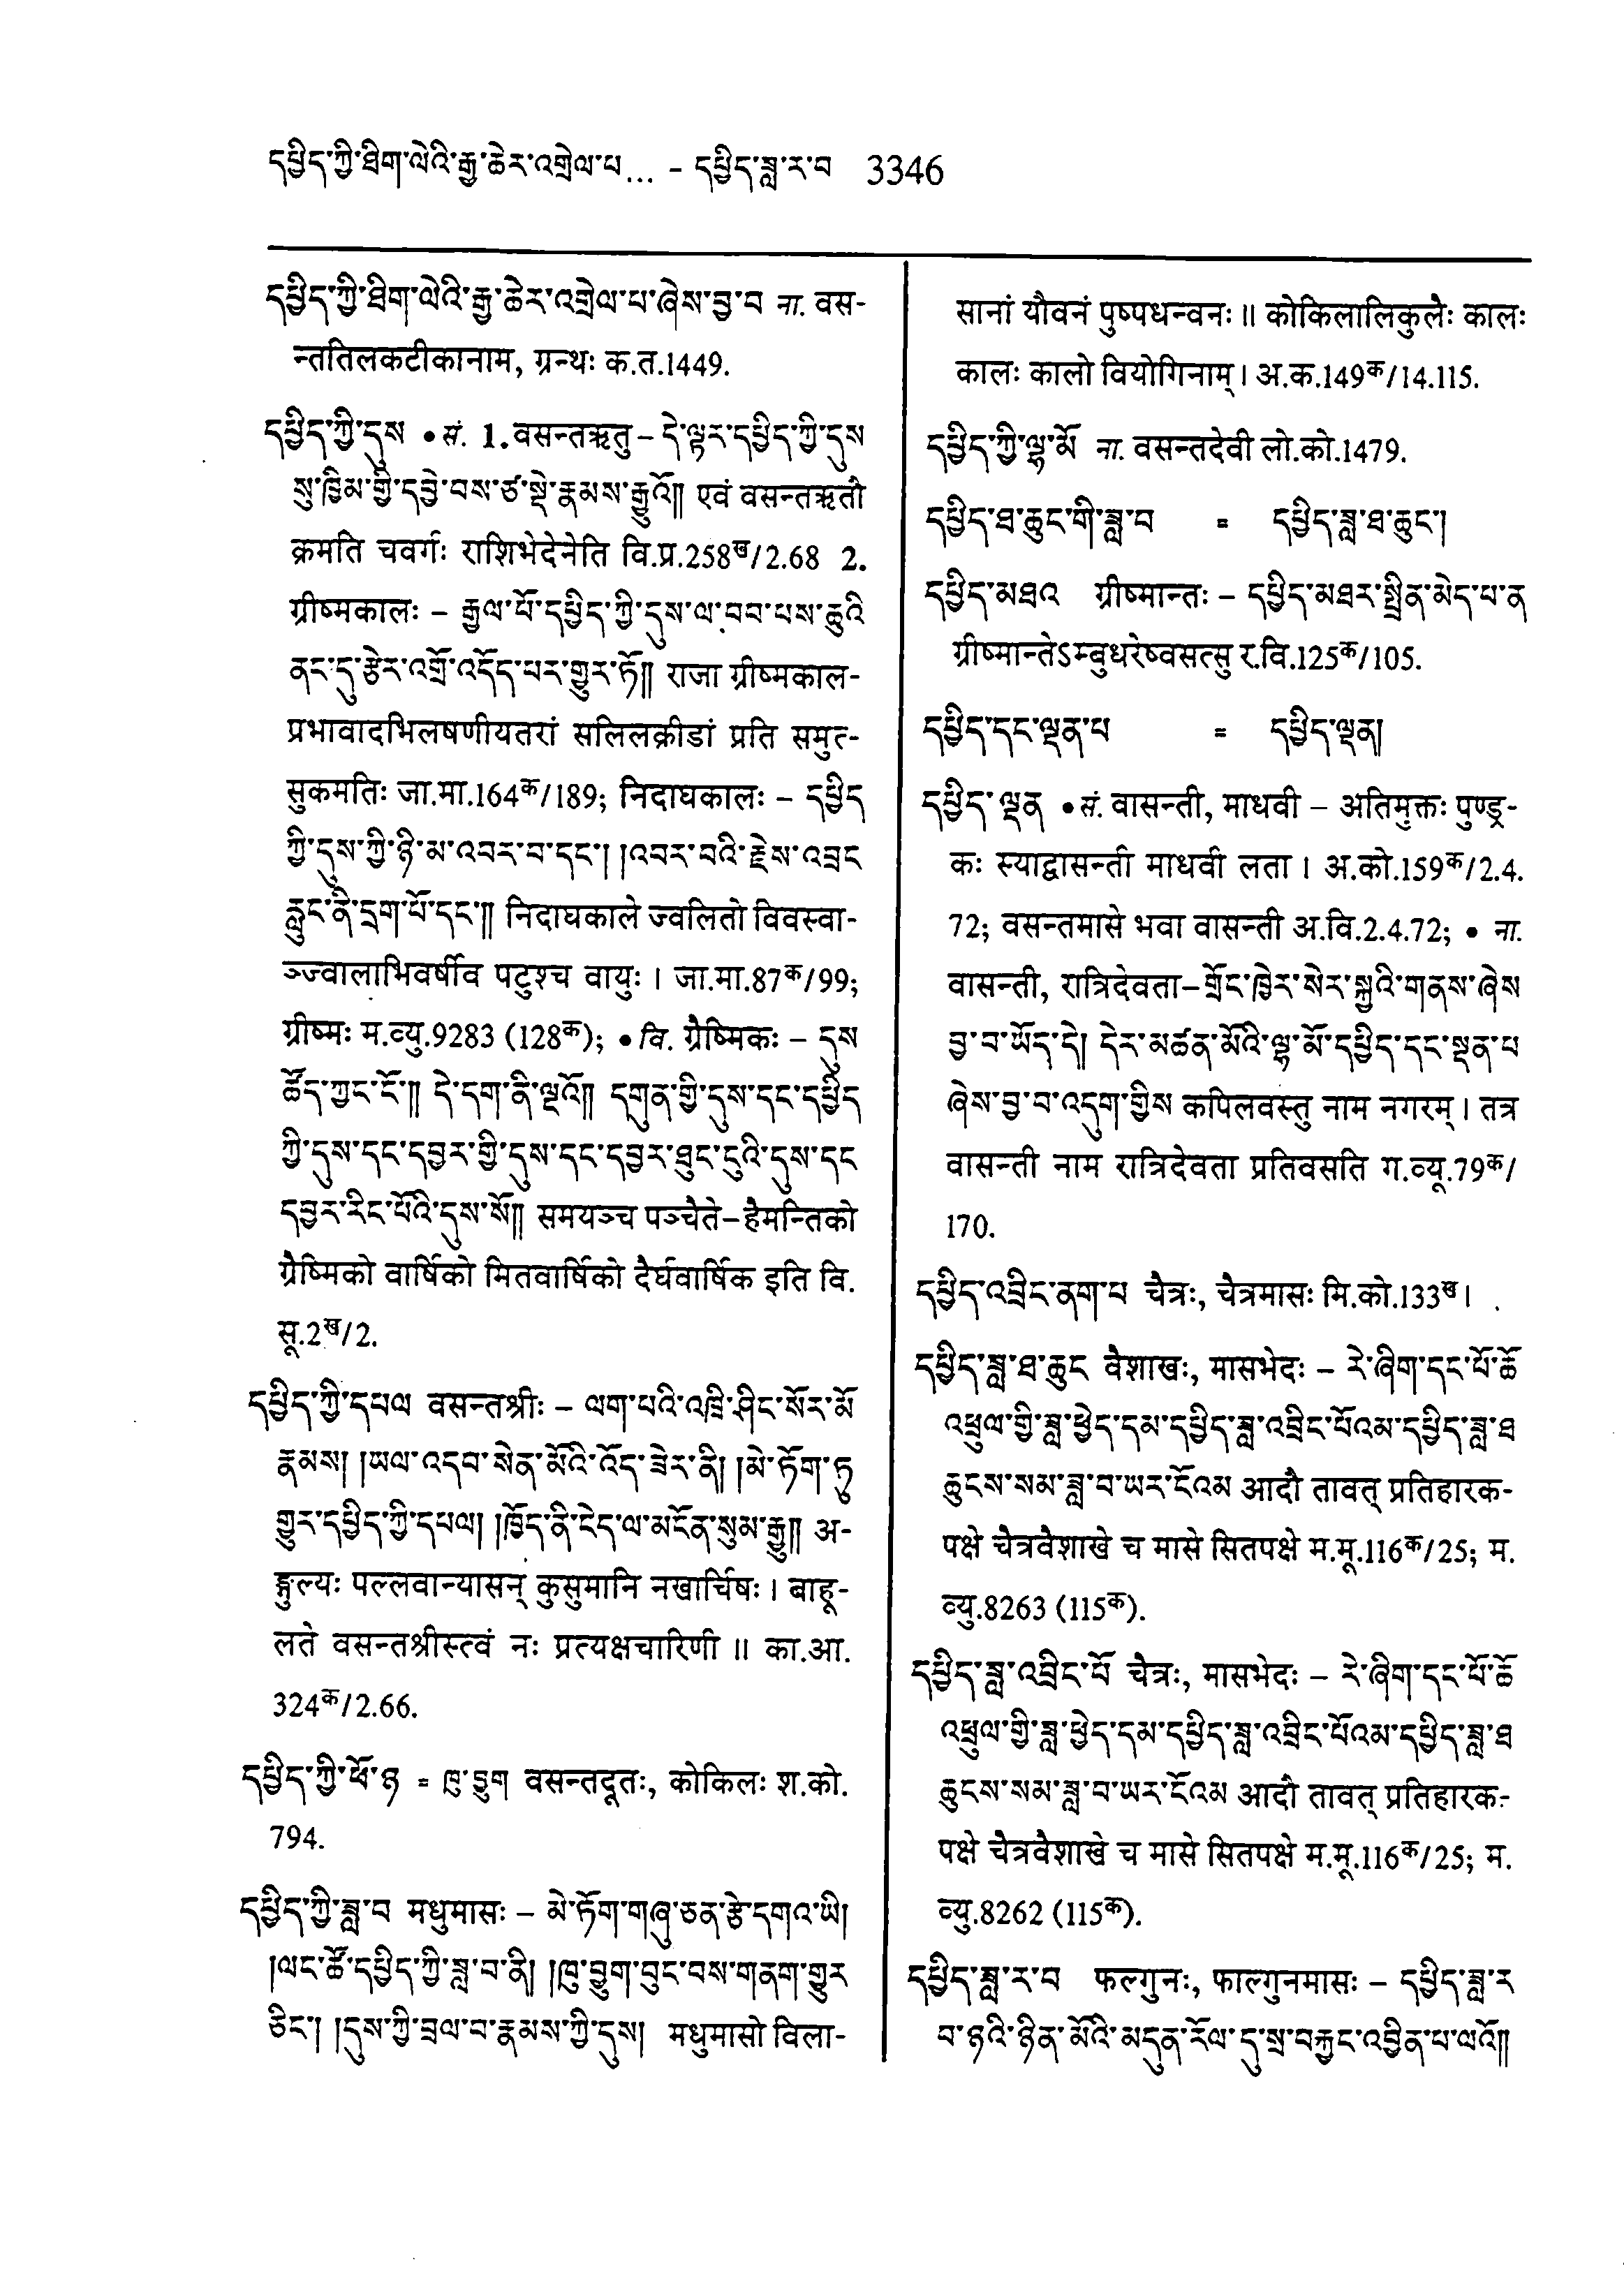 དཔྱིད་ཀྱི་ཐིག་ལེའི་རྒྱ་ཆེར་འགྲེལ་པ... - དཔྱིད་ཟླ་ར་བ 3346
དཔྱིད་ཀྱི་ཐིག་ལེའི་རྒྱ་ཆེར་འགྲེལ་པ་ཞེས་བྱ་བ ना. वस-
न्ततिलकटीकानाम, ग्रन्थः क.त.1449.
དཔྱིད་ཀྱི་དུས • सं. 1. वसन्तऋतु – དེ་ལྟར་དཔྱིད་ཀྱི་དུས
སུ་ཁྱིམ་གྱི་དབྱེ་བས་ཙ་སྡེ་རྣམས་རྒྱུའོ།། एवं वसन्तऋतौ
क्रमति चवर्गः राशिभेदेनेति वि.प्र.258ख/2.68 2.
ग्रीष्मकालः – རྒྱལ་པོ་དཔྱིད་ཀྱི་དུས་ལ་བབ་པས་ཆུའི
ནང་དུ་རྩེར་འགྲོ་འདོད་པར་གྱུར་ཏོ།། राजा ग्रीष्मकाल-
प्रभावादभिलषणीयतरां सलिलक्रीडां प्रति समुत्-
सुकमतिः जा.मा.164क/189; निदाघकालः – དཔྱིད
ཀྱི་དུས་ཀྱི་ཉི་མ་འབར་བ་དང་། །འབར་བའི་རྗེས་འབྲང
རླུང་ནི་དྲག་པོ་དང་།། निदाघकाले ज्वलितो विवस्वा-
ञ्ज्वालाभिवर्षीव पटुश्च वायुः । जा.मा.87क/99;
ग्रीष्मः म.व्यु.9283 (128क); • वि. ग्रैष्मिकः – དུས
ཚོད་ཀྱང་ངོ་།། དེ་དག་ནི་ལྔའོ།། དགུན་གྱི་དུས་དང་དཔྱིད
ཀྱི་དུས་དང་དབྱར་གྱི་དུས་དང་དབྱར་ཐུང་ངུའི་དུས་དང
དབྱར་རིང་པོའི་དུས་སོ།། समयञ्च पञ्चैते–हैमन्तिको
ग्रैष्मिको वार्षिको मितवार्षिको दैर्घवार्षिक इति वि.
सू.2ख/2.
དཔྱིད་ཀྱི་དཔལ वसन्तश्रीः – ལག་པའི་འཁྲི་ཤིང་སོར་མོ
རྣམས། །ཡལ་འདབ་སེན་མོའི་འོད་ཟེར་ནི། །མེ་ཏོག་ཏུ
གྱུར་དཔྱིད་ཀྱི་དཔལ། །ཁྱོད་ནི་ངེད་ལ་མངོན་སུམ་རྒྱུ།། अ-
ङ्गुल्यः पल्लवान्यासन् कुसुमानि नखार्चिषः । बाहू-
लते वसन्तश्रीस्त्वं नः प्रत्यक्षचारिणी ॥ का.आ.
324क/2.66.
དཔྱིད་ཀྱི་ཕོ་ཉ = ཁུ་བྱུག वसन्तदूतः, कोकिलः श.को.
794.
དཔྱིད་ཀྱི་ཟླ་བ मधुमासः – མེ་ཏོག་གཞུ་ཅན་རྩེ་དགའ་ཡི།
།ལང་ཚོ་དཔྱིད་ཀྱི་ཟླ་བ་ནི། །ཁུ་བྱུག་བུང་བས་གནག་གྱུར
ཅིང་། །དུས་ཀྱི་བྲལ་བ་རྣམས་ཀྱི་དུས། मधुमासो विला-
सानां यौवनं पुष्पधन्वनः ॥ कोकिलालिकुलैः कालः
कालः कालो वियोगिनाम् । अ.क.149क/14.115.
དཔྱིད་ཀྱི་ལྷ་མོ ना. वसन्तदेवी लो.को.1479.
དཔྱིད་ཐ་ཆུང་གི་ཟླ་བ = དཔྱིད་ཟླ་ཐ་ཆུང་།
དཔྱིད་མཐའ ग्रीष्मान्तः – དཔྱིད་མཐར་སྤྲིན་མེད་པ་ན
ग्रीष्मान्तेऽम्बुधरेष्वसत्सु र.वि.125क/105.
དཔྱིད་དང་ལྡན་པ = དཔྱིད་ལྡན།
དཔྱིད་ལྡན • सं. वासन्ती, माधवी – अतिमुक्तः पुण्ड्र-
कः स्याद्वासन्ती माधवी लता । अ.को.159क/2.4.
72; वसन्तमासे भवा वासन्ती अ.वि.2.4.72; • ना.
वासन्ती, रात्रिदेवता–གྲོང་ཁྱེར་སེར་སྐྱའི་གནས་ཞེས
བྱ་བ་ཡོད་དེ། དེར་མཚན་མོའི་ལྷ་མོ་དཔྱིད་དང་ལྡན་པ
ཞེས་བྱ་བ་འདུག་གྱིས कपिलवस्तु नाम नगरम् । तत्र
वासन्ती नाम रात्रिदेवता प्रतिवसति ग.व्यू.79क/
170.
དཔྱིད་འབྲིང་ནག་པ चैत्रः, चैत्रमासः मि.को.133ख ।
དཔྱིད་ཟླ་ཐ་ཆུང वैशाखः, मासभेदः – རེ་ཞིག་དང་པོ་ཆོ
འཕྲུལ་གྱི་ཟླ་ཕྱེད་དམ་དཔྱིད་ཟླ་འབྲིང་པོའམ་དཔྱིད་ཟླ་ཐ
ཆུངས་སམ་ཟླ་བ་ཡར་ངོའམ आदौ तावत् प्रतिहारक-
पक्षे चैत्रवैशाखे च मासे सितपक्षे म.मू.116क/25; म.
व्यु.8263 (115क).
དཔྱིད་ཟླ་འབྲིང་པོ चैत्रः, मासभेदः – རེ་ཞིག་དང་པོ་ཆོ
འཕྲུལ་གྱི་ཟླ་ཕྱེད་དམ་དཔྱིད་ཟླ་འབྲིང་པོའམ་དཔྱིད་ཟླ་ཐ
ཆུངས་སམ་ཟླ་བ་ཡར་ངོའམ आदौ तावत् प्रतिहारक-
पक्षे चैत्रवैशाखे च मासे सितपक्षे म.मू.116क/25; म.
व्यु.8262 (115क).
དཔྱིད་ཟླ་ར་བ फल्गुनः, फाल्गुनमासः – དཔྱིད་ཟླ་ར
བ་ཉའི་ཉིན་མོའི་མདུན་རོལ་དུ་སྲ་བརྐྱང་འབྱིན་པ་ལའོ།།